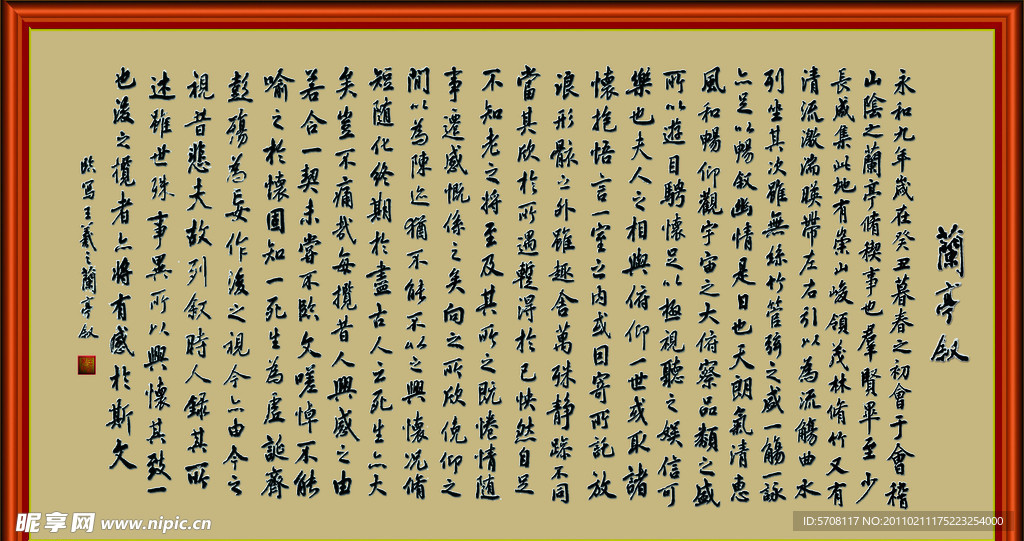 蘭亭叙
永和九年歲在癸丑暮春之初會于會稽
山陰之蘭亭脩稧事也羣賢畢至少
長咸集此地有崇山峻領茂林脩竹又有
清流激湍暎帶左右引以為流觴曲水
列坐其次雖無絲竹管絃之盛一觴一詠
亦足以暢叙幽情是日也天朗氣清惠
風和暢仰觀宇宙之大俯察品類之盛
所以遊目騁懷足以極視聽之娛信可
樂也夫人之相與俯仰一世或取諸
懷抱悟言一室之內或因寄所託放
浪形骸之外雖趣舍萬殊靜躁不同
當其欣於所遇暫得於己怏然自足
不知老之將至及其所之既惓情隨
事遷感慨係之矣向之所欣俛仰之
閒以為陳迹猶不能不以之興懷況脩
短隨化終期於盡古人云死生亦大
矣豈不痛哉每攬昔人興感之由
若合一契未嘗不臨文嗟悼不能
喻之於懷固知一死生為虛誕齊
彭殤為妄作後之視今亦由今之
視昔悲夫故列叙時人錄其所
述雖世殊事異所以興懷其致一
也後之攬者亦將有感於斯文
臨写王羲之蘭亭叙
昵享网 www.nipic.cn
ID:5708117 NO:20110211175223254000